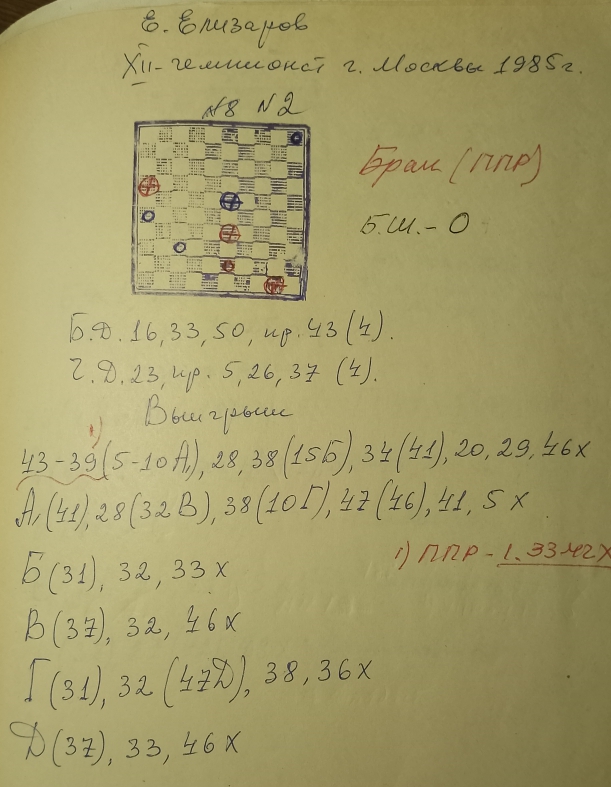 Е. Елизаров
XII-чемпионат г. Москвы 1985г.
№8 №2
Брак (ППР)
Б.Ш.-0
Б.Д. 16, 33, 50, пр. 43 (4).
Ч.Д. 23, пр. 5, 26, 37 (4).
Выигрыш
1)
43-39 (5-10А), 28, 38 (15Б), 34 (41), 20, 29, 46x
А, (41), 28 (32В), 38 (10Г), 47 (46), 41, 5x
1) ППР - 1. 33-42x
Б (31), 32, 33x
В (37), 32, 46x
Г (31), 32 (47Д), 38, 36x
Д (37), 33, 46x